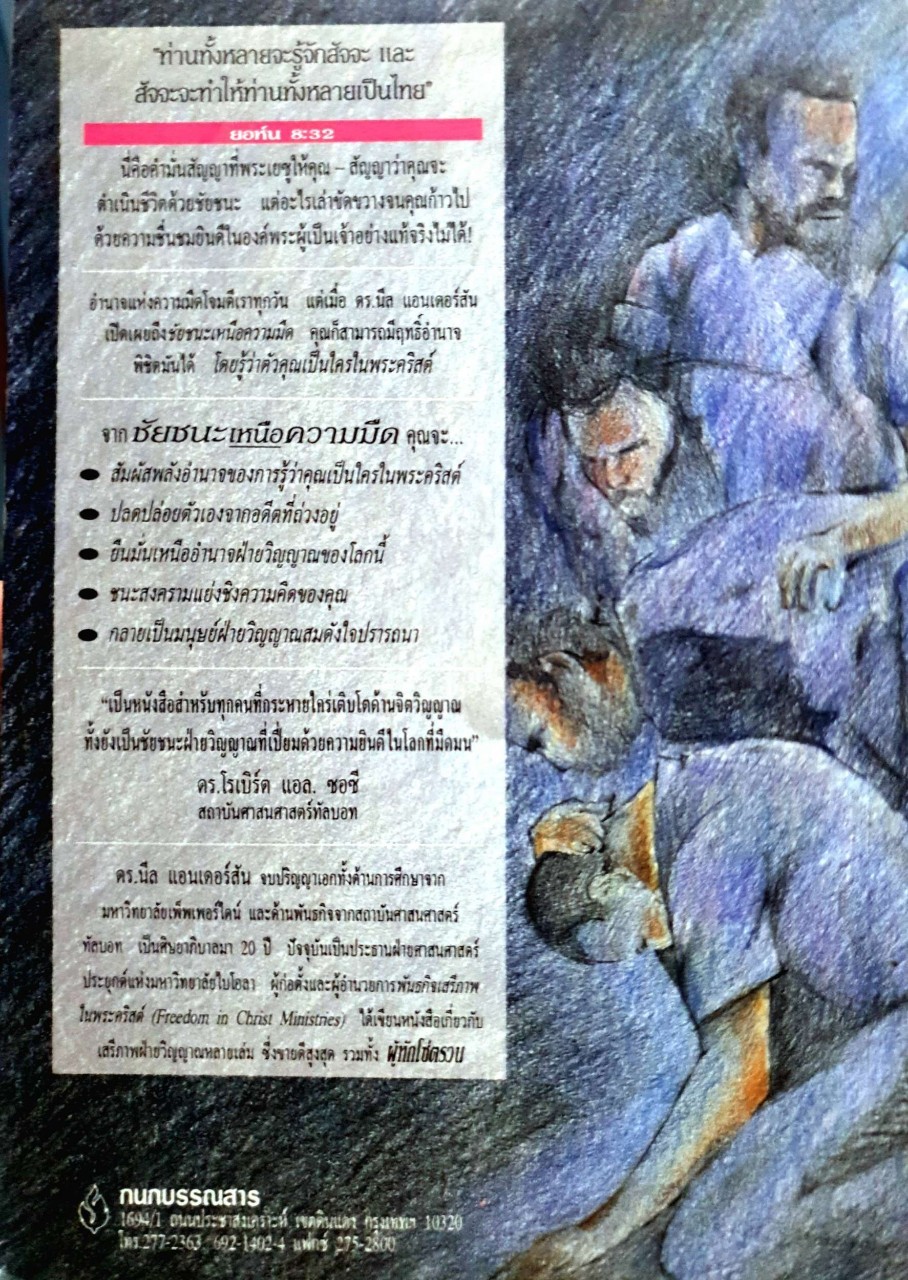 "ท่านทั้งหลายจะรู้จักสัจจะ และ
สัจจะจะทำให้ท่านทั้งหลายเป็นไทย"
ยอห์น 8:32
นี่คือคำมั่นสัญญาที่พระเยซูให้คุณ – สัญญาว่าคุณจะ
ดำเนินชีวิตด้วยชัยชนะ แต่อะไรเล่าขัดขวางจนคุณก้าวไป
ด้วยความชื่นชมยินดีในองค์พระผู้เป็นเจ้าอย่างแท้จริงไม่ได้!
อำนาจแห่งความมืดโจมตีเราทุกวัน แต่เมื่อ ดร.นีล แอนเดอร์สัน
เปิดเผยถึงชัยชนะเหนือความมืด คุณก็สามารถมีฤทธิ์อำนาจ
พิชิตมันได้ โดยรู้ว่าตัวคุณเป็นใครในพระคริสต์
จาก ชัยชนะเหนือความมืด คุณจะ...
● สัมผัสพลังอำนาจของการรู้ว่าคุณเป็นใครในพระคริสต์
● ปลดปล่อยตัวเองจากอดีตที่ถ่วงอยู่
● ยืนมั่นเหนืออำนาจฝ่ายวิญญาณของโลกนี้
● ชนะสงครามแย่งชิงความคิดของคุณ
● กลายเป็นมนุษย์ฝ่ายวิญญาณสมดังใจปรารถนา
“เป็นหนังสือสำหรับทุกคนที่กระหายใคร่เติบโตด้านจิตวิญญาณ
ทั้งยังเป็นชัยชนะฝ่ายวิญญาณที่เปี่ยมด้วยความยินดีในโลกที่มืดมน”
ดร.โรเบิร์ต แอล. ซอซี
สถาบันศาสนศาสตร์ทัลบอท
ดร.นีล แอนเดอร์สัน จบปริญญาเอกทั้งด้านการศึกษาจาก
มหาวิทยาลัยเพ็พเพอร์ไดน์ และด้านพันธกิจจากสถาบันศาสนศาสตร์
ทัลบอท เป็นศิษยาภิบาลมา 20 ปี ปัจจุบันเป็นประธานฝ่ายศาสนศาสตร์
ประยุกต์แห่งมหาวิทยาลัยไบโอลา ผู้ก่อตั้งและผู้อำนวยการพันธกิจเสรีภาพ
ในพระคริสต์ (Freedom in Christ Ministries) ได้เขียนหนังสือเกี่ยวกับ
เสรีภาพฝ่ายวิญญาณหลายเล่ม ซึ่งขายดีสูงสุด รวมทั้ง ผู้หักโซ่ตรวน
กนกบรรณสาร
1694/1 ถนนประชาสงเคราะห์ เขตดินแดง กรุงเทพฯ 10320
โทร.277-2363 692-1402-4 แฟกซ์ 275-2800